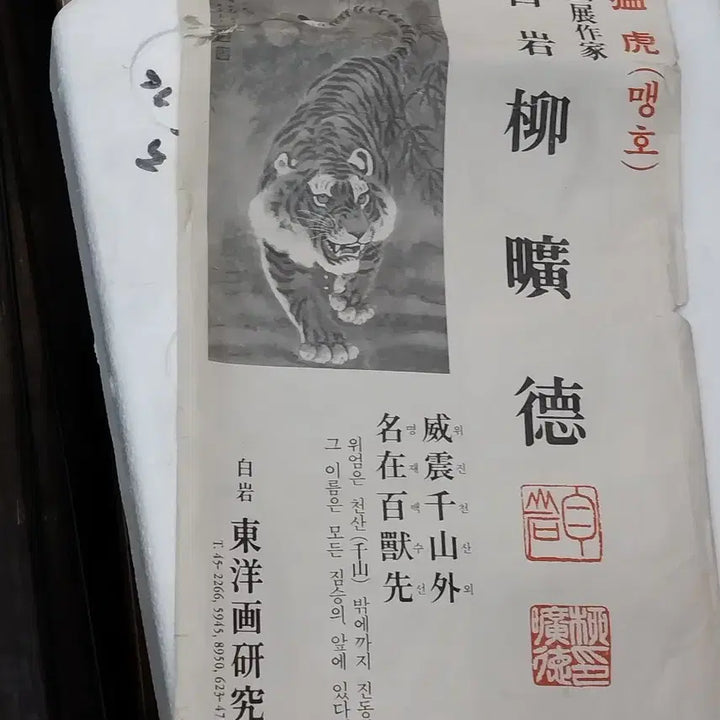 猛虎(맹호)
展作家
白岩 柳曠德
白岩
威震千山外
위진천산외
名在百獸先
명재백수선
위엄은 천산(千山) 밖에까지 진동
그 이름은 모든 짐승의 앞에 있다
白岩 東洋画研究
T. 45-2266, 5945, 8950, 623-47